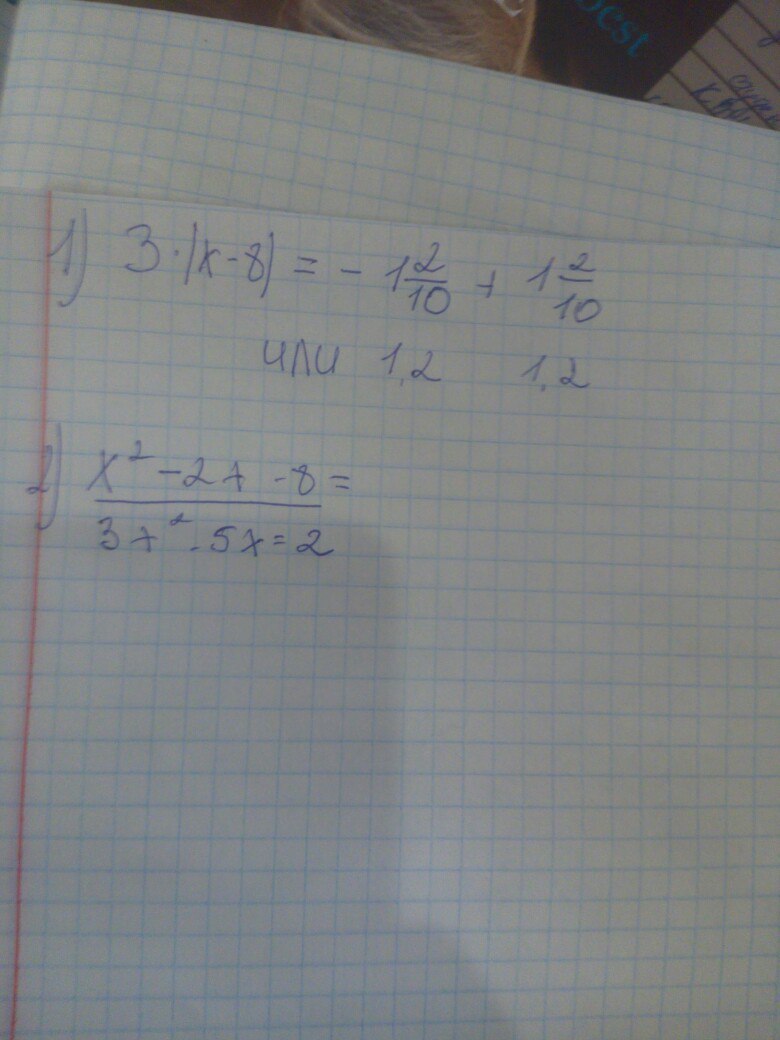 best
1) 3·|x-8| = - 1 2/10 + 1 2/10
или 1,2 1,2
2) x² - 2x - 8 =
3x² - 5x = 2